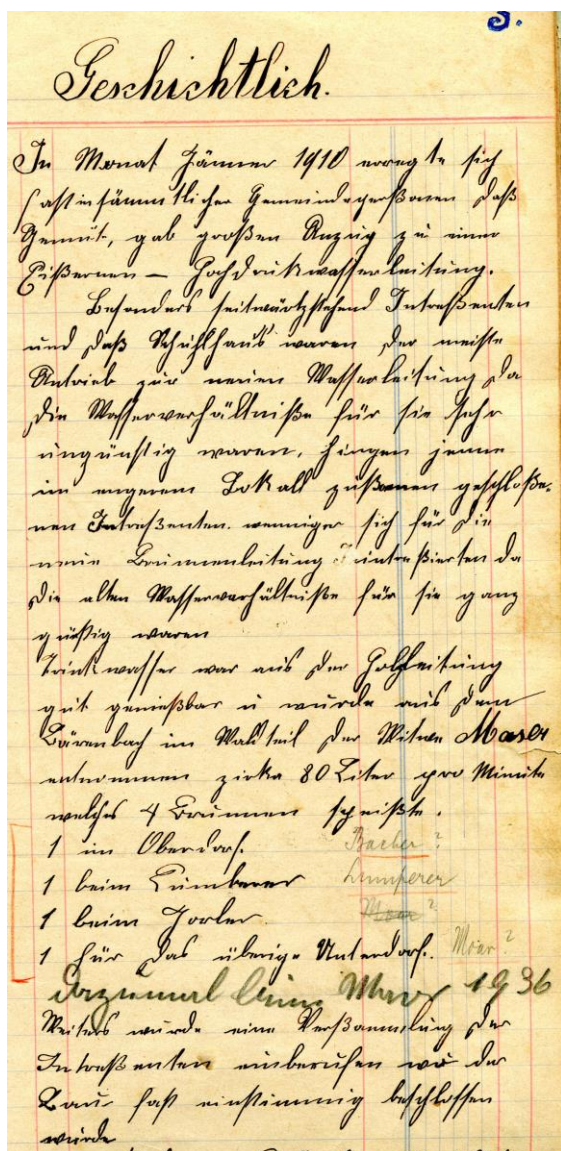 3.
Geschichtlich.
In Monat Jänner 1910 erregte sich
fast in sämmtlicher Gemeindeperßonen daß
Gemüt, gab großen Anzug zu einer
Eißernen – Hochdrukwasserleitung.
Besonders seitwärtzstehend Intreßenten
und daß Schuhlhaus waren der meiste
Antrieb zur neuen Wasserleitung da
die Wasserverhältniße für sie sehr
ungünstig waren, hingen jenne
im engerem Lokall zußamen geschloße-
nen Intreßenten. wenniger sich für die
neue Brunnenleitung intreßierten da
die alten Wasserverhältniße für sie ganz
günstig waren
Trinkwasser war aus der Holzleitung
gut genießbar u wurde aus dem
Bärenbach im Waldteil der Witwe Maser
entnommen zirka 80 Liter pro Minute
welches 4 Brunnen speißte.
1 im Oberdorf. Bacher?
1 beim Lumperer Lumperer
1 beim Jorler. Moar?
1 für das übrige Unterdorf. Moar?
beim Moar 1936
Weiters wurde eine Verßammlung der
Intreßenten einberufen wo der
Bau fast einstimmig beschlossen
wurde